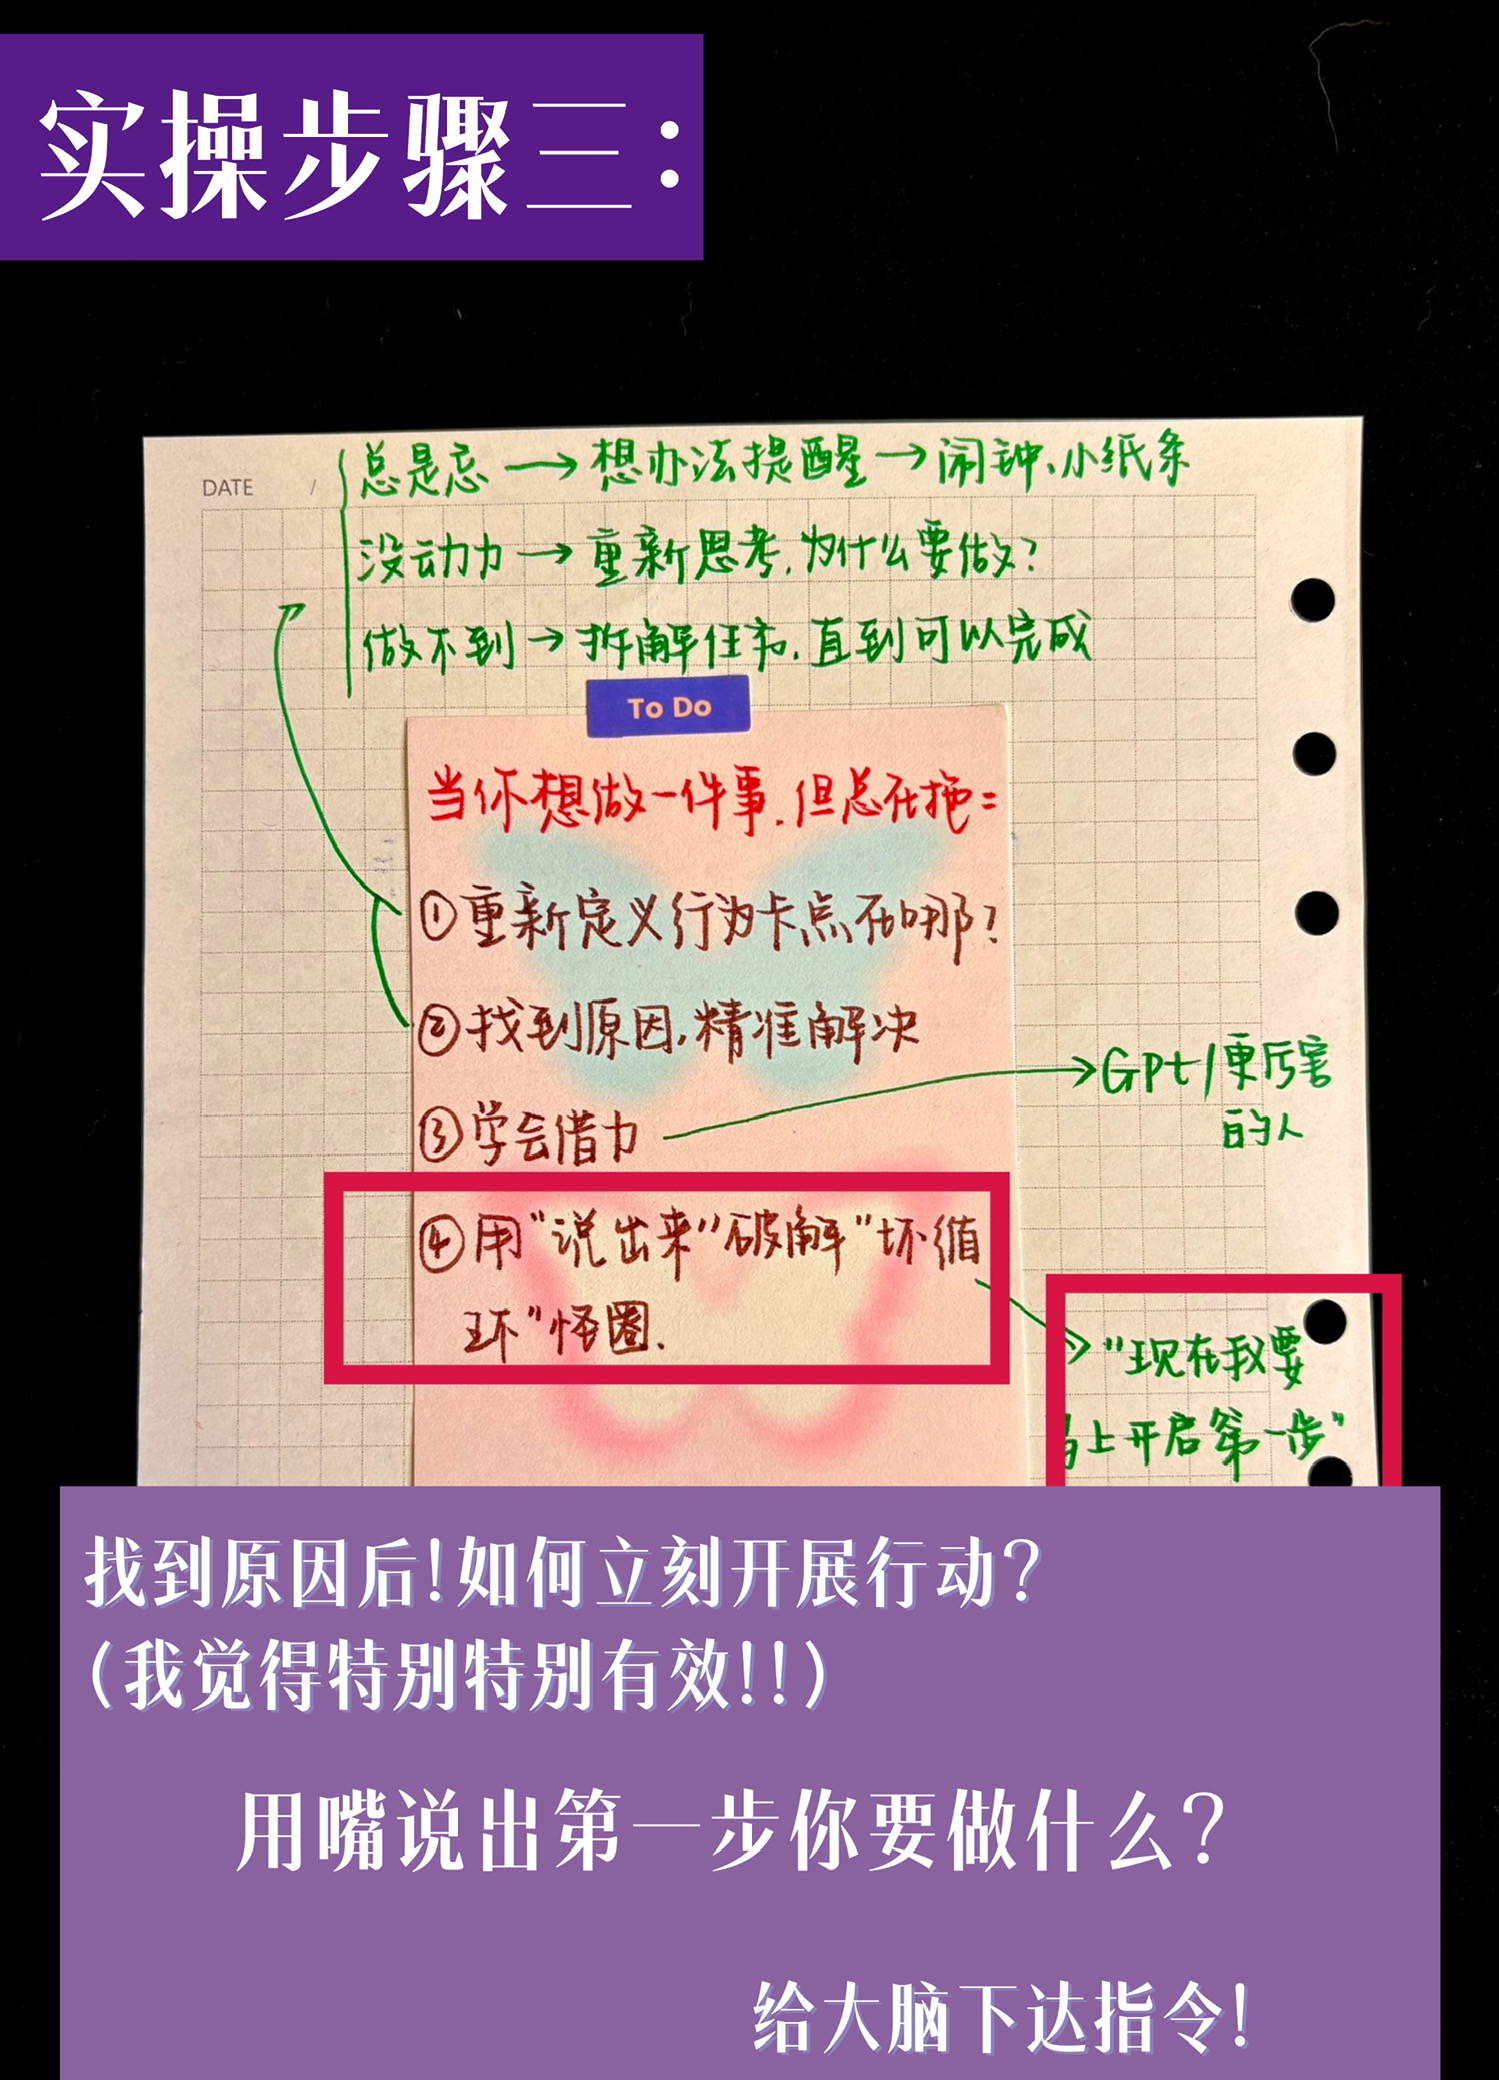 实操步骤三:
DATE /
总是忘→想办法提醒→闹钟、小纸条
没动力→重新思考,为什么要做?
做不到→拆解任务,直到可以完成
To Do
当你想做一件事,但总在拖:
①重新定义行为卡点在哪?
②找到原因,精准解决
③学会借力
→Gpt/更厉害
的人
④用“说出来”破解“坏循
环”怪圈.
→“现在我要
马上开启第一步”
找到原因后!如何立刻开展行动?
(我觉得特别特别有效!!)
用嘴说出第一步你要做什么?
给大脑下达指令!